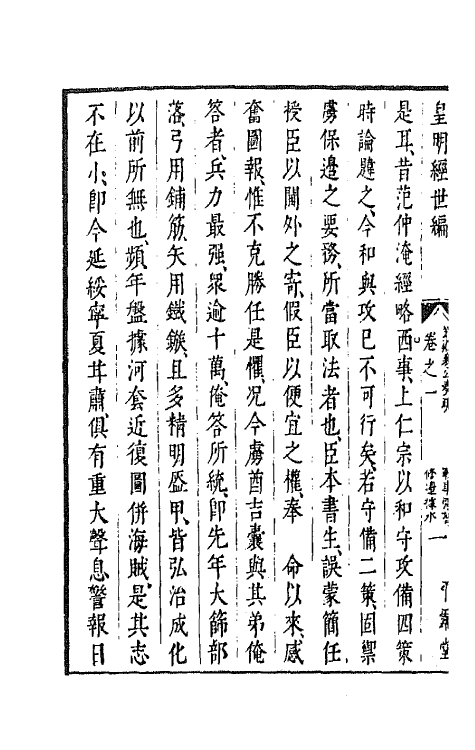 皇明經世編
卷之一
一
堂
是耳、昔范仲淹經略西事、上仁宗以和守攻備四策
時論韙之、今和與攻已不可行矣、若守備二策、固禦
虜保邊之要務、所當取法者也、臣本書生、誤蒙簡任
授臣以閫外之寄、假臣以便宜之權、奉　命以來、感
奮圖報、惟不克勝任是懼、况今虜酋吉囊與其弟俺
答者、兵力最强、衆逾十萬、俺答所統、即先年大篩部
落、弓用鋪筋、矢用鐵鏃、且多精明盔甲、皆弘治成化
以前所無也、頻年盤據河套、近復圖併海賊、是其志
不在小、即今延綏寧夏甘肅、俱有重大聲息、警報日